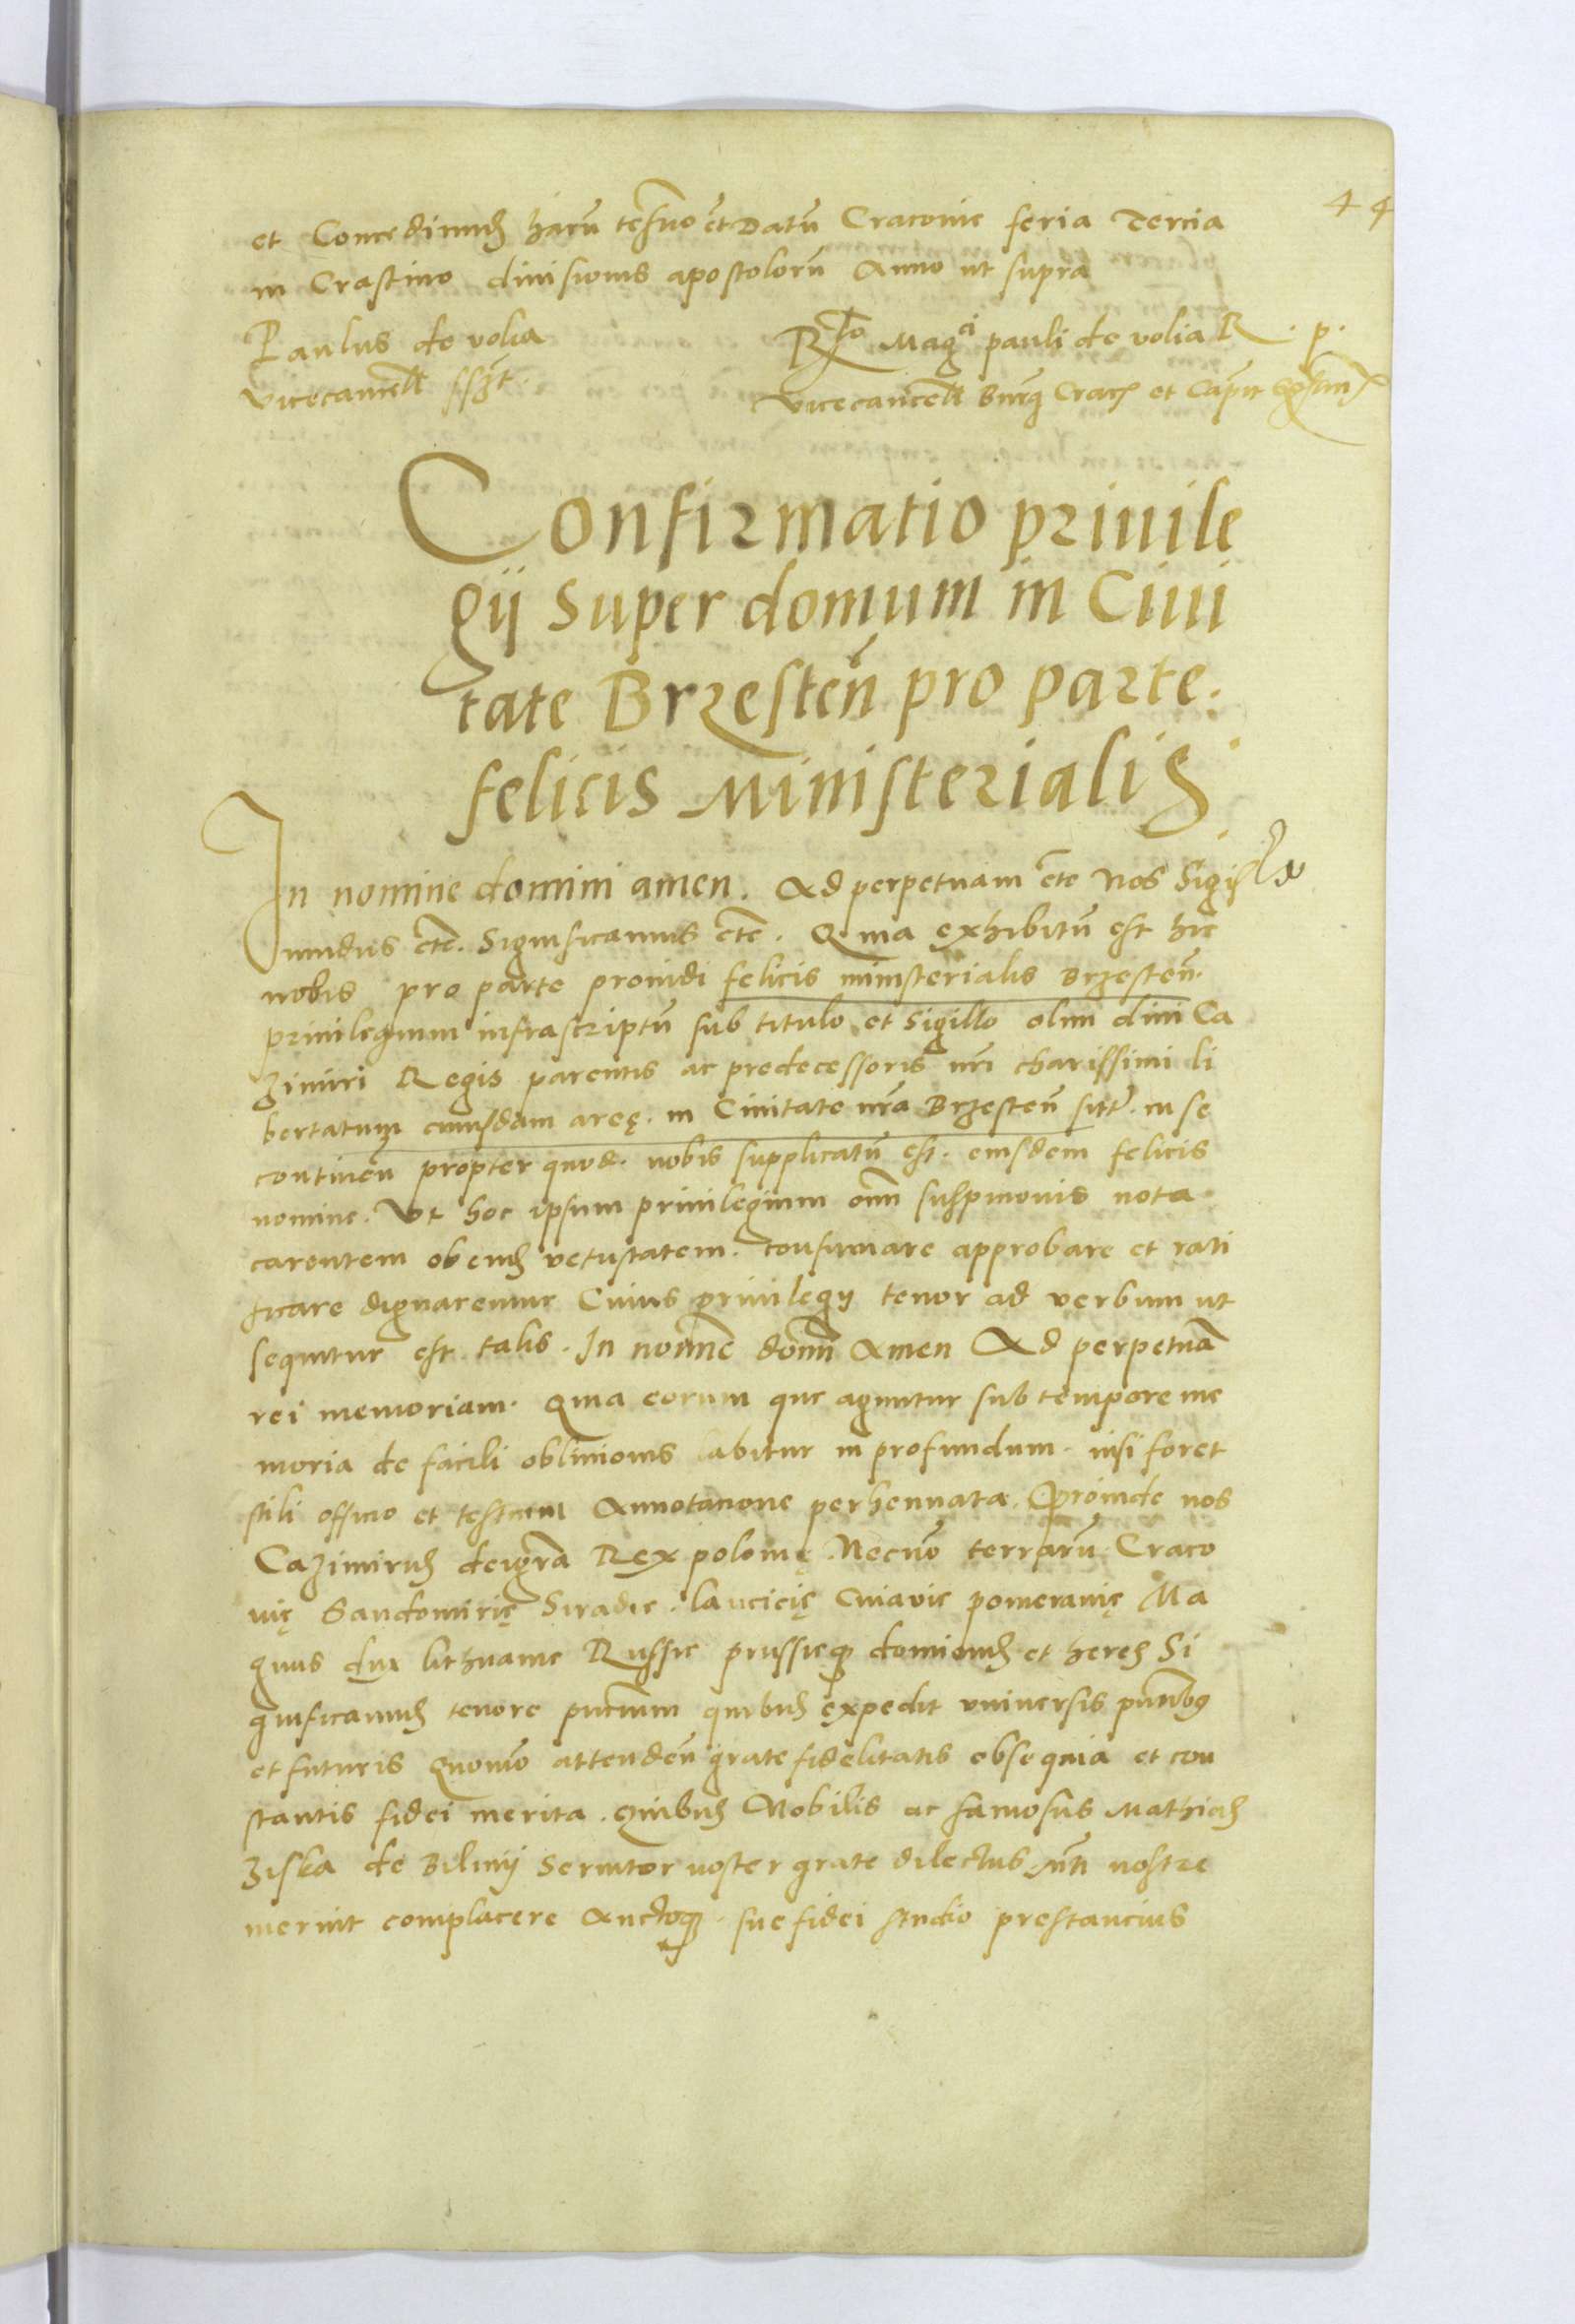 44
et Concedimus harum testimonio etc Datum Cracovie feria Tercia
in Crastino divisionis apostolorum Anno ut supra
Paulus de volia
vicecancell sszt
Rto Magci pauli de volia R. p.
vicecancell Burg Crac et Capit
Confirmatio privile
gij super domum in Civi
tate Brzesten pro parte.
felicis Ministerialis
In nomine domini amen. Ad perpetuam etc Nos Sigis
mundus etc. Significamus etc. Quia exhibitum est hic
nobis pro parte providi felicis ministerialis Brzesten.
privilegium infrascriptum sub titulo et sigillo olim divi Ca
zimiri Regis parentis ac predecessoris nri charissimi li
bertatum cuiusdam areę. in Civitate nra Brzesten sitte. in se
continen propter quod. nobis supplicatum est. eiusdem felicis
nomine. Ut hoc ipsum privilegium omni suspicionis nota
carentem ob eius vetustatem. confirmare approbare et rati
ficare dignaremur Cuius privilegij tenor ad verbum ut
sequitur est talis. In nomine domini Amen Ad perpetuam
rei memoriam. Quia eorum que aguntur sub tempore me
moria de facili oblivionis labitur in profundum. nisi foret
stili officio et testium Annotacione perhennata. Proinde nos
Cazimirus dei gra Rex polonię Necno terrarum Craco
vię Sandomirię Siradie. lancicię Cuiavie pomeranię Ma
gnus dux lithuanie Russie prussieq dominus et heres Si
gnificamus tenore pncium quibus expedit universis pntibus
et futuris Quomo attenden grate fidelitatis obsequia et con
stantis fidei merita. Quibus Nobilis ac famosus Mathias
Ziska de Biliny Servitor noster grate dilectus mti nostre
meruit complacere Auctoq. sue fidei studio prestancius